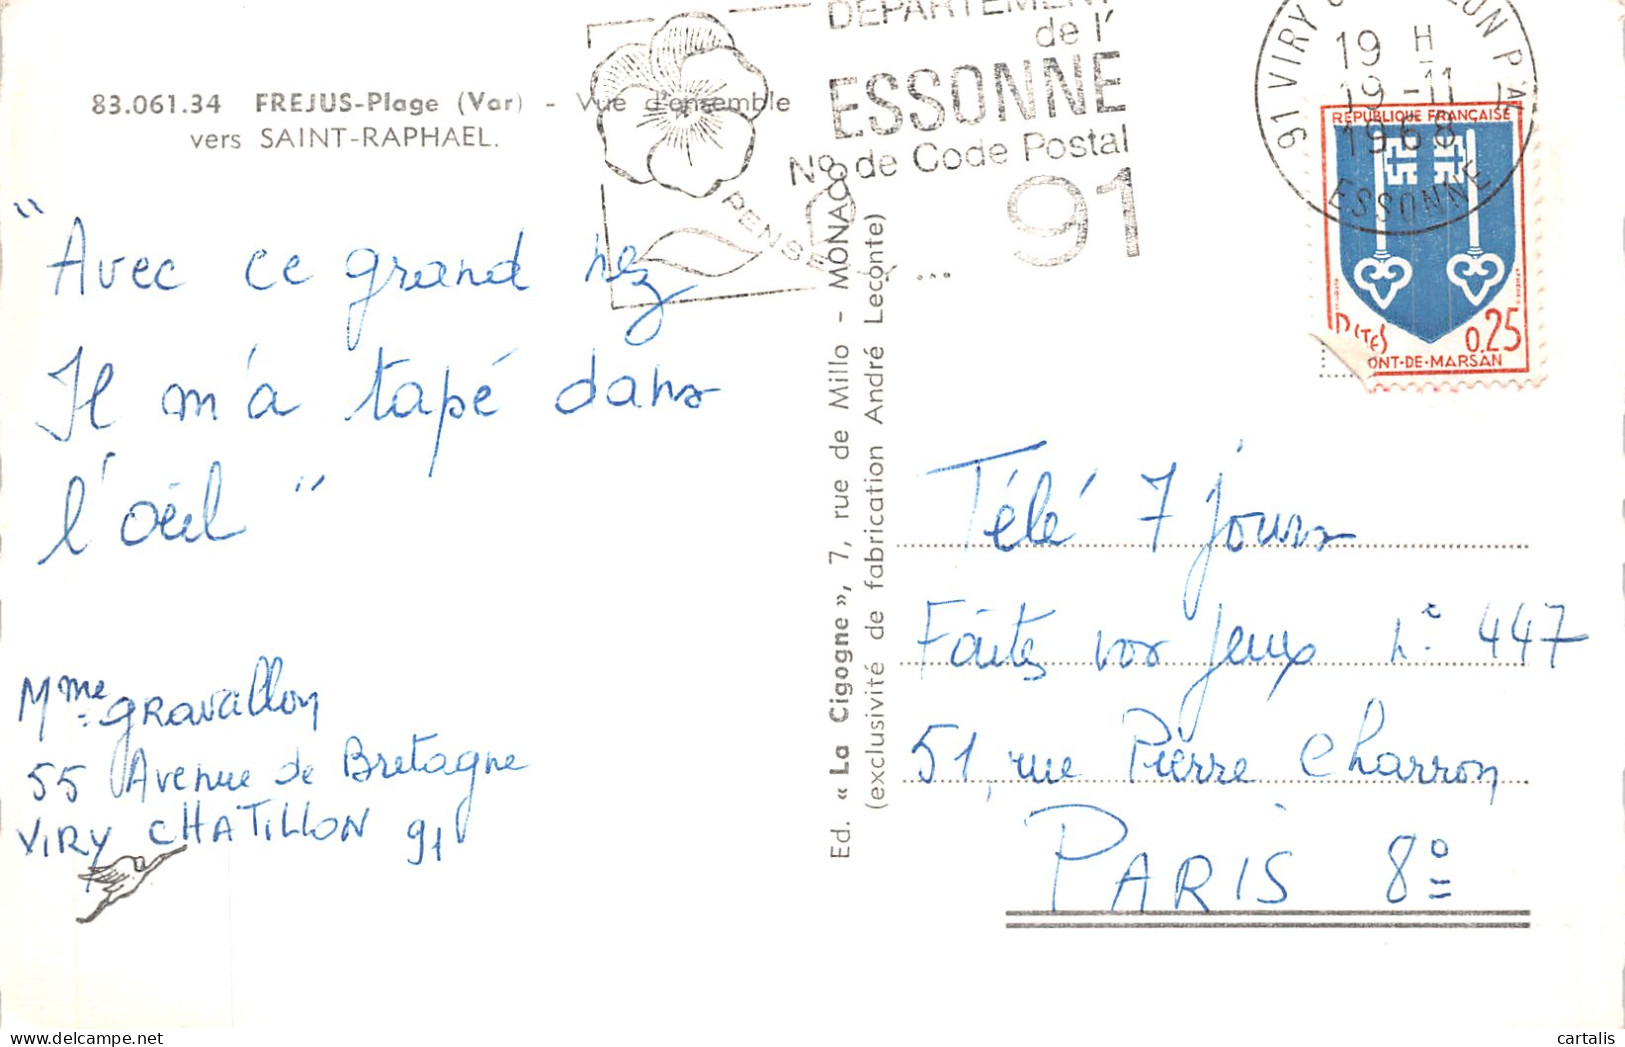 83.061.34 FREJUS-Plage (Var) - Vue d'ensemble
vers SAINT-RAPHAEL.
DÉPARTEMENT
de l'
ESSONNE
No de Code Postal
91
PENSEZ Y ...
91 VIRY CHATILLON PAL
19 H
19-11
1968
ESSONNE
REPUBLIQUE FRANÇAISE
0,25
ONT-DE-MARSAN
" Avec ce grand nez
Il m'a tapé dans
l'oeil "
Mme gravallon
55 Avenue de Bretagne
VIRY CHATILLON 91
Ed. « La Cigogne », 7, rue de Millo - MONACO
(exclusivité de fabrication André Leconte)
Télé 7 jours
Faites vos jeux n° 447
51, rue Pierre Charron
PARIS 8°
cartalis.com